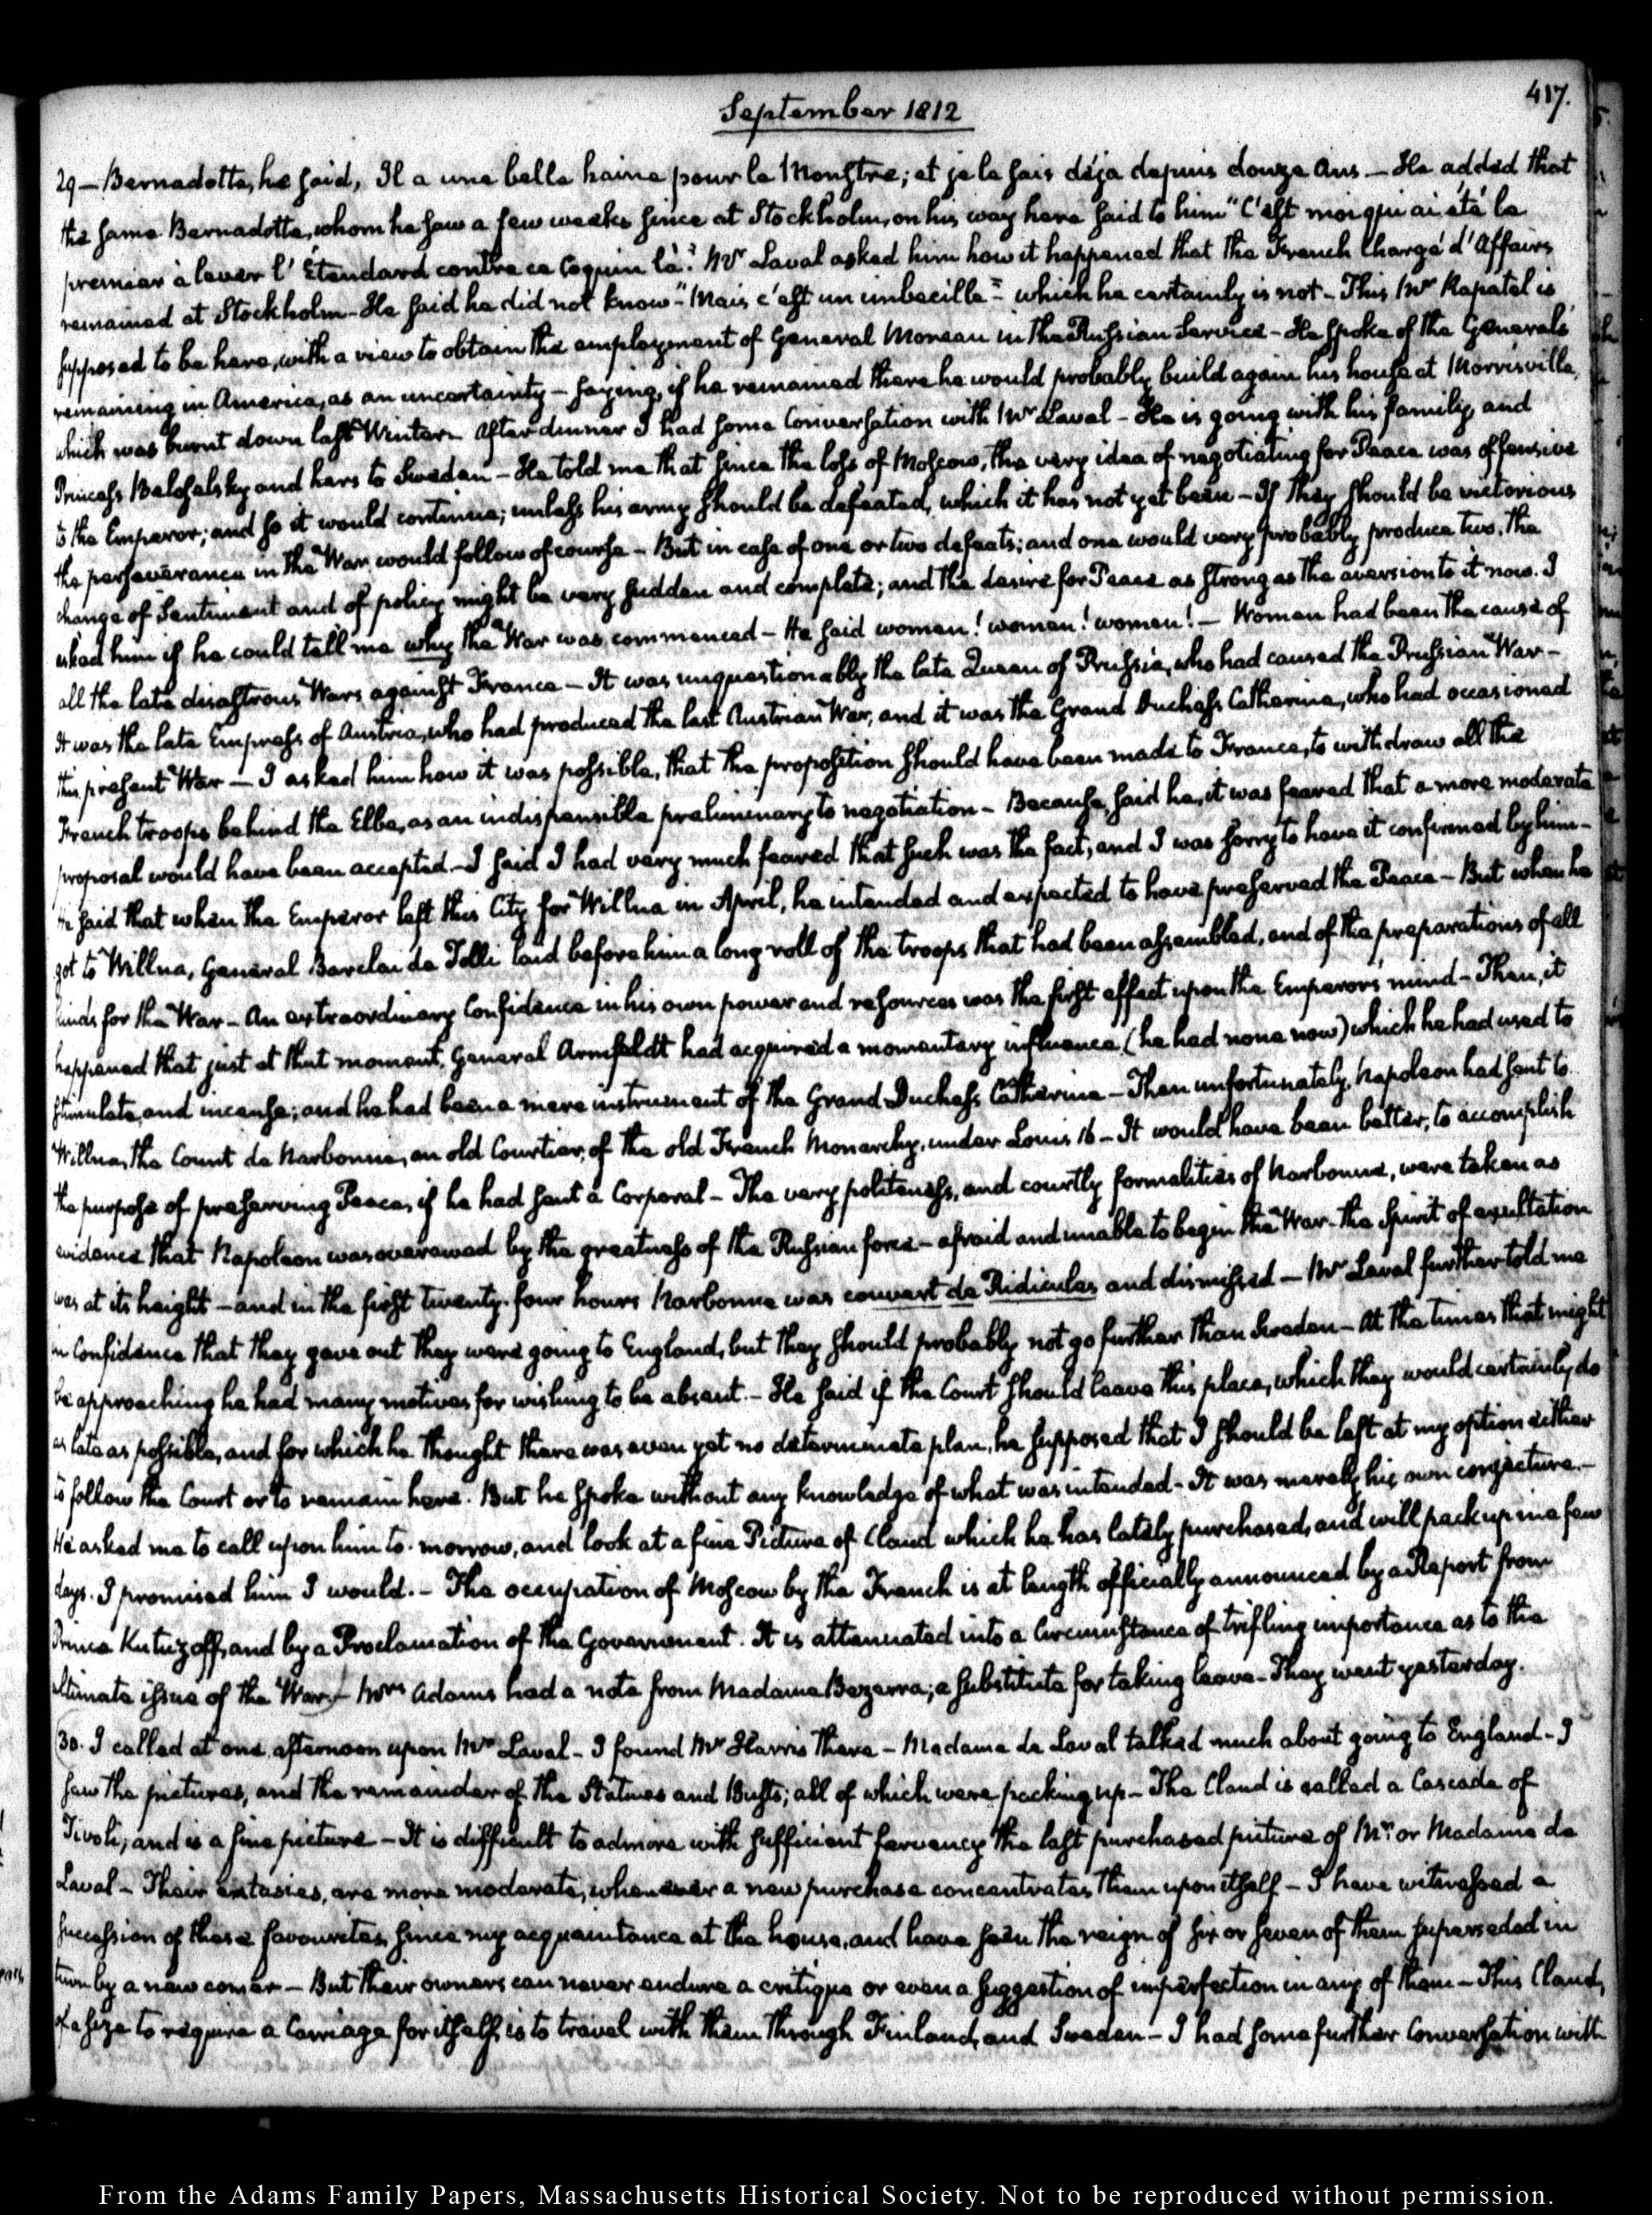 417.
September 1812
29 — Bernadotte, he said, Il a une belle haine pour le Monstre; et je le sais déja depuis douze Ans — He added that
the same Bernadotte, whom he saw a few weeks since at Stockholm, on his way here said to him "C'est moi qui ai été le
premier à lever l'Étendard contre ce Coquin là." Mr Laval asked him how it happened that the French Chargé d'Affairs
remained at Stockholm — He said he did not know — "Mais c'est un imbecille" — which he certainly is not — This Mr Rapatel is
supposed to be here, with a view to obtain the employment of General Moreau in the Russian Service — He spoke of the Generals
remaining in America, as an uncertainty — saying, if he remained there he would probably build again his house at Morrisville,
which was burnt down last Winter — After dinner I had some Conversation with Mr Laval — He is going with his family, and
Princess Beloselsky and hers to Sweden — He told me that since the loss of Moscow, the very idea of negotiating for Peace was offensive
to the Emperor; and so it would continue; unless his army should be defeated, which it has not yet been — If they should be victorious
the perseverance in the War would follow of course — But in case of one or two defeats; and one would very probably produce two, the
change of Sentiment and of policy might be very sudden and complete; and the desire for Peace as strong as the aversion to it now. I
asked him if he could tell me why the War was commenced — He said women! women! women! — Women had been the cause of
all the late disastrous Wars against France — It was unquestionably the late Queen of Prussia, who had caused the Prussian War —
It was the late Empress of Austria, who had produced the last Austrian War, and it was the Grand Duchess Catherine, who had occasioned
this present War — I asked him how it was possible, that the proposition should have been made to France, to withdraw all the
French troops behind the Elbe, as an indispensible preliminary to negotiation — Because, said he, it was feared that a more moderate
proposal would have been accepted — I said I had very much feared that such was the fact; and I was sorry to have it confirmed by him —
He said that when the Emperor left this City for Willna in April, he intended and expected to have preserved the Peace — But when he
got to Willna, General Barclai de Tolli laid before him a long roll of the troops that had been assembled, and of the preparations of all
kinds for the War — An extraordinary Confidence in his own power and resources was the first effect upon the Emperor's mind — Then, it
happened that just at that moment, General Armfeldt had acquired a momentary influence (he had none now) which he had used to
stimulate and incense; and he had been a mere instrument of the Grand Duchess Catherine — Then unfortunately, Napoleon had sent to
Willna, the Count de Narbonne, an old Courtier, of the old French Monarchy, under Louis 16 — It would have been better, to accomplish
the purpose of preserving Peace, if he had sent a Corporal — The very politeness, and courtly formalities of Narbonne, were taken as
evidence that Napoleon was overawed by the greatness of the Russian force — afraid and unable to begin the War — The Spirit of exultation
was at its height — and in the first twenty-four hours Narbonne was couvert de Ridicules and dismissed — Mr Laval further told me
in Confidence that they gave out they were going to England, but they should probably not go further than Sweden — At the times that might
be approaching he had many motives for wishing to be absent. — He said if the Court should leave this place, which they would certainly do
as late as possible, and for which he thought there was even yet no determinate plan, he supposed that I should be left at my option either
to follow the Court or to remain here. But he spoke without any knowledge of what was intended — It was merely his own conjecture. —
He asked me to call upon him to-morrow, and look at a fine Picture of Claud which he has lately purchased, and will pack up in a few
days. I promised him I would. — The occupation of Moscow by the French is at length officially announced by a Report from
Prince Kutuzoff, and by a Proclamation of the Government. It is attenuated into a Circumstance of trifling importance as to the
ultimate issue of the War. — Mrs Adams had a note from Madame Bezerra; a substitute for taking leave — They went yesterday.
30. I called at one afternoon upon Mr Laval — I found Mr Harris there — Madame de Laval talked much about going to England — I
saw the pictures, and the remainder of the Statues and Busts; all of which were packing up — The Claud is called a Cascade of
Tivoli; and is a fine picture — It is difficult to admire with sufficient fervency the last purchased picture of Mr. or Madame de
Laval — Their extasies, are more moderate, whenever a new purchase concentrates them upon itself — I have witnessed a
succession of these favourites, since my acquaintance at the house, and have seen the reign of six or seven of them superseded in
turn by a new comer — But their owners can never endure a critique or even a suggestion of imperfection in any of them — This Claud,
of a size to require a Carriage for itself, is to travel with them through Finland, and Sweden — I had some further Conversation with
From the Adams Family Papers, Massachusetts Historical Society. Not to be reproduced without permission.